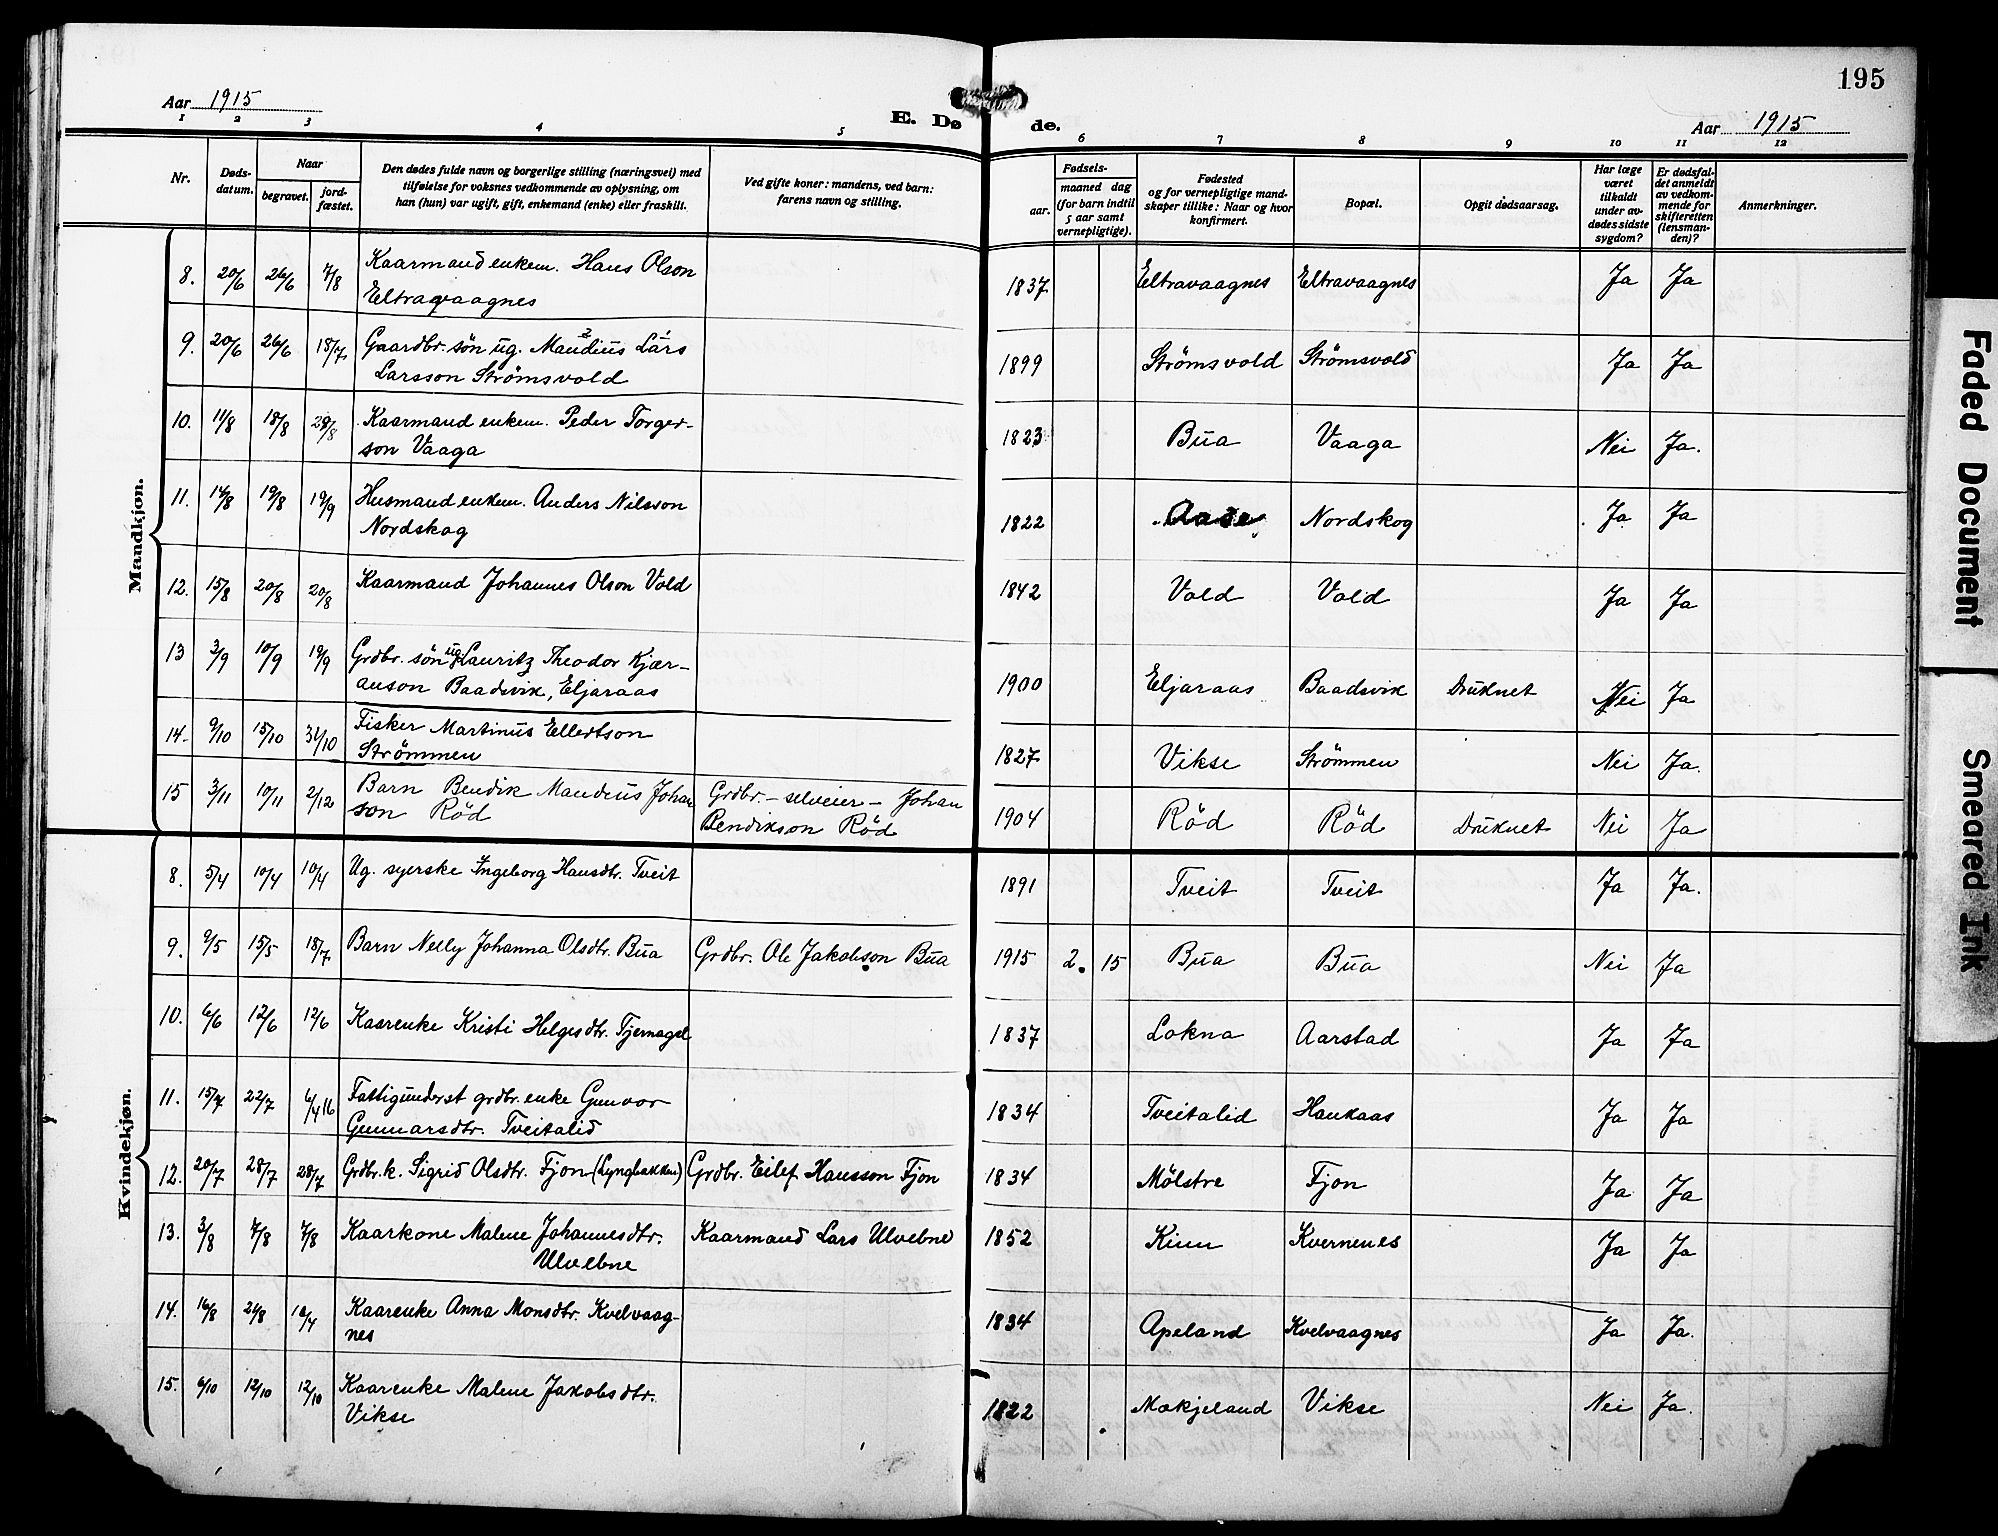 195
Aar 1915
E. Dø de.
Aar 1915
1 2 3 4 5 6 7 8 9 10 11 12
Nr.
Døds-
datum.
Naar
begravet.
jord-
fæstet.
Den dødes fulde navn og borgerlige stilling (næringsvei) med
tilføielse for voksnes vedkommende av oplysning, om
han (hun) var ugift, gift, enkemand (enke) eller fraskilt.
Ved gifte koner: mandens, ved barn:
farens navn og stilling.
Fødsels-
aar.
maaned dag
(for barn indtil
5 aar samt
vernepligtige).
Fødested
og for vernepligtige mand-
skaper tillike: Naar og hvor
konfirmert.
Bopæl.
Opgit dødsaarsag.
Har læge
været
tilkaldt
under av-
dødes sidste
sygdom?
Er dødsfal-
det anmeldt
av vedkom-
mende for
skifteretten
(lensman-
den)?
Anmerkninger.
Mandkjøn.
8. 20/6 26/6 7/8 Kaarmand enkem. Hans Olson
Eltravaagnes
1837 Eltravaagnes Eltravaagnes Ja Ja
9. 20/6 26/6 18/7 Gaardbr. søn ug. Maudius Lars
Larsson Strömsvold
1899 Strömsvold Strömsvold Ja Ja
10. 11/8 18/8 28/8 Kaarmand enkem. Peder Torger-
son Vaaga
1823 Bua Vaaga Nei Ja.
11. 14/8 19/8 19/9 Husmand enkem. Anders Nilsson
Nordskog
1822 Nordskog Ja Ja
12. 15/8 20/8 20/8 Kaarmand Johannes Olson Vold
1842 Vold Vold Ja Ja
13 3/9 10/9 19/9 Grdbr. søn ug. Lauritz Theodor Kjær-
anson Baadsvik, Eljaraas
1900 Eljaraas Baadsvik Druknet Nei Ja
14. 9/10 15/10 31/10 Fisker Martinus Ellertson
Strömmen
1827 Vikse Strömmen Nei Ja.
15 3/11 10/11 2/12 Barn Bendik Maudeus Johan
son Röd
Grdbr. - selveier - Johan
Bendikson Röd
1904 Röd Röd Druknet Nei Ja
Kvindekjøn.
8. 5/4 10/4 10/4 Ug. syerske Ingeborg Hansdtr. Tveit
1891 Tveit Tveit Ja Ja.
9. 9/5 15/5 18/7 Barn Nelly Johanna Olsdtr. Bua Grdbr. Ole Jakobson Bua
1915 2. 15 Bua Bua Nei Ja
10. 6/6 12/6 12/6 Kaarenke Kristi Helgesdtr. Tjernagel
1837 Lokna Aarstad Ja Ja
11. 15/7 22/7 6/4 16 Fattigunderst grdbr. enke Gunvor
Gunnarsdtr. Tveitalid
1834 Tveitalid Haukaas Ja Ja
12. 20/7 28/7 28/7 Grdbr. k. Sigrid Olsdtr. Fjon (Lyngbakken) Grdbr. Eilef Hansson Fjon
1834 Mölstre Fjon Ja Ja
13. 3/8 7/8 7/8 Kaarkone Malene Johannesdtr.
Ulvebne
Kaarmand Lars Ulvebne
1852 Kinn Kvernenes Ja Ja
14. 16/8 21/8 Kaarenke Anna Monsdtr. Kvelvaag-
nes
1834 Apeland Kvelvaagnes Ja Ja.
15. 6/10 12/10 12/10 Kaarenke Malene Jakobsdtr.
Vikse
1822 Mækjeland Vikse Nei Ja.
Faded Document
Smeared Ink